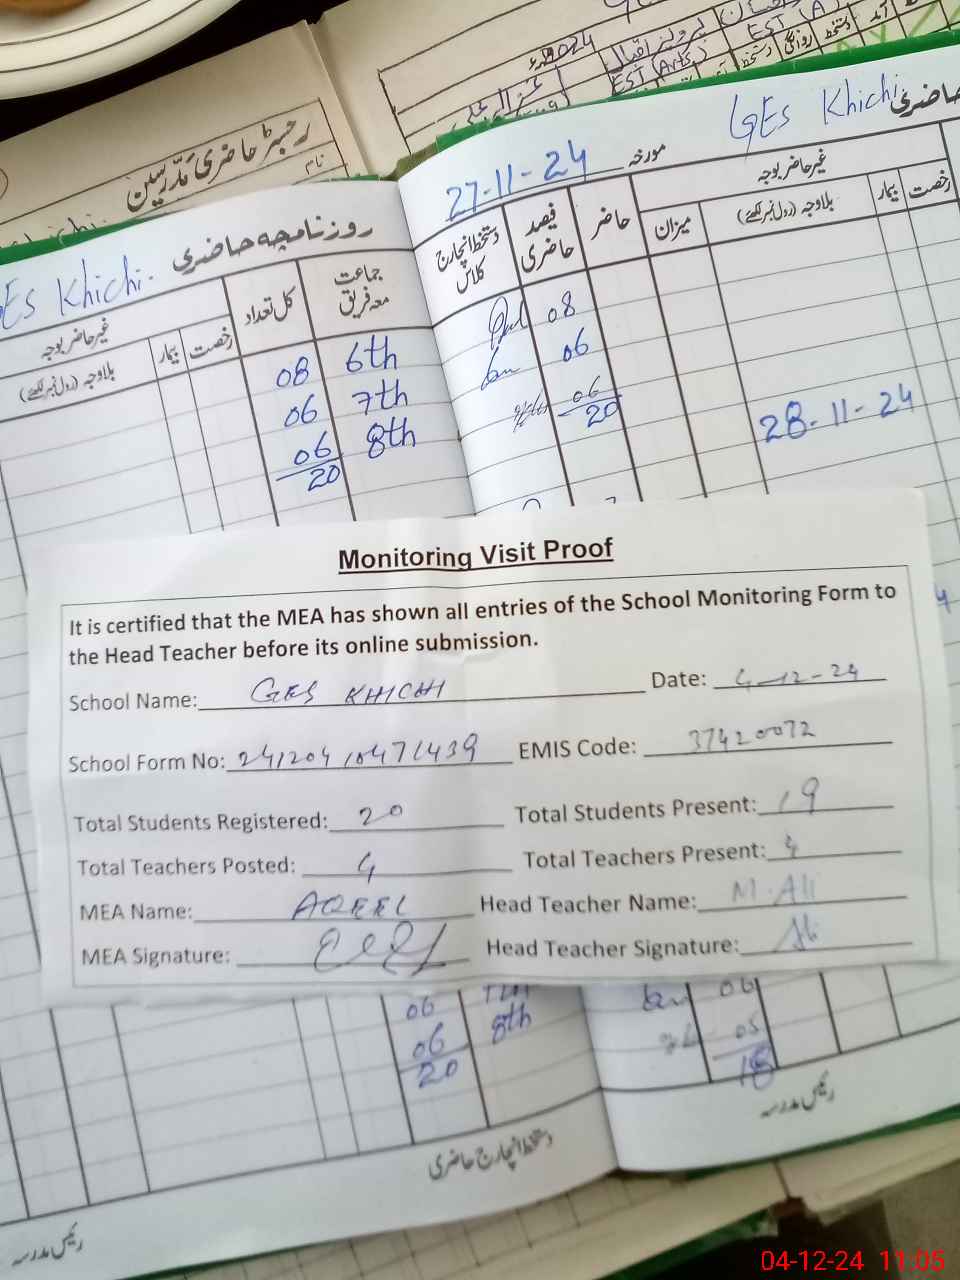 2024
EST (Arts)
EST (A)
رجسٹر حاضری مدرسین
نام
GES Khichi
حاضری
27-11-24 مورخہ
غیر حاضر بوجہ
دستخط انچارج کلاس
فیصد حاضری
حاضر
میزان
بلاوجہ (رول نمبر لکھئے)
بیمار
رخصت
08
06
06
20
28-11-24
روزنامچہ حاضری
GES Khichi.
غیر حاضر بوجہ
جماعت معہ فریق
کل تعداد
رخصت
بیمار
بلاوجہ (رول نمبر لکھئے)
08 6th
06 7th
06 8th
20
Monitoring Visit Proof
It is certified that the MEA has shown all entries of the School Monitoring Form to
the Head Teacher before its online submission.
School Name: GES KHICHI Date: 4-12-24
School Form No: 24120410471439 EMIS Code: 37420072
Total Students Registered: 20 Total Students Present: 19
Total Teachers Posted: 4 Total Teachers Present: 4
MEA Name: AQEEL Head Teacher Name: M. Ali
MEA Signature: Head Teacher Signature: Ali
06 7th
06 8th
20
06
05
18
رئیس مدرسہ
دستخط انچارج حاضری
رئیس مدرسہ
04-12-24 11:05